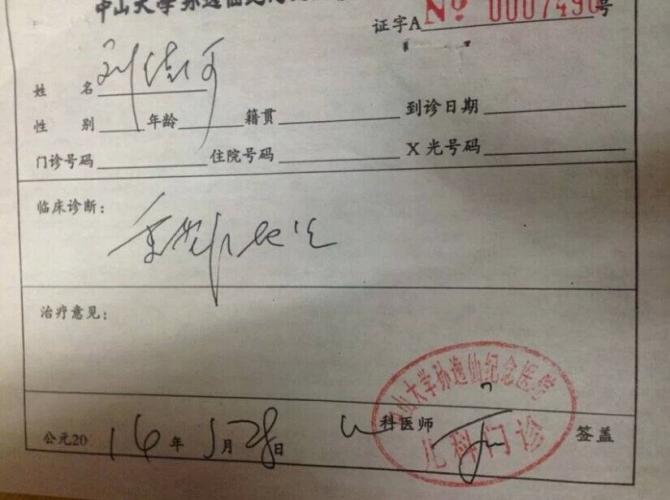 中山大学孙逸仙纪念
证字A No 0007490号
姓 名 刘
性 别 年龄 籍贯 到诊日期
门诊号码 住院号码 X光号码
临床诊断：
治疗意见：
山大学孙逸仙纪念医院
儿科门诊
公元20 16 年 5月 28日 科医师 签盖